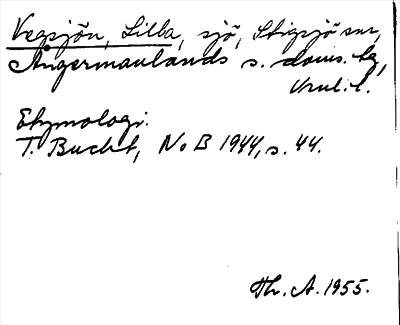 Vegsjön, Lilla, sjö, Stigsjö sn,
Ångermanlands s. doms. tg,
Vnl. l.
Etymologi.
T. Bucht, NoB 1944, s. 44.
Th. A. 1955.